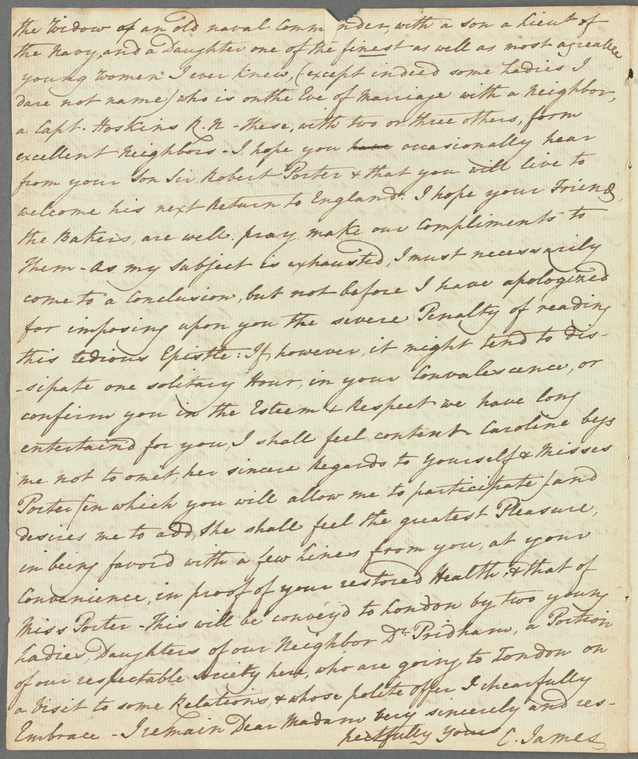 the Widow of an old naval Comm nder, with a son a Lieut of
the Navy, and a Daughter one of the finest as well as most agreable
young Women I ever knew, (except indeed some Ladies I
dare not name) who is on the Eve of Marriage with a Neighbor,
a Capt. Hoskins R.N - these, with two or three others, form
excellent Neighbors - I hope you have occasionally hear
from your Son Sir Robert Porter & that you will live to
welcome his next Return to England. I hope your Friends,
the Bakers, are well. pray make our Compliments to
them - As my Subject is exhausted, I must necessarily
come to a Conclusion, but not before I have apologized
for imposing upon you the severe Penalty of reading
this tedious Epistle: If, however, it might tend to dis-
-sipate one solitary Hour, in your Convalescence, or
confirm you in the Esteem & Respect we have long
entertaind for you, I shall feel content. Caroline begs
me not to omit, her sincere Regards to yourself & Misses
Porter (in which you will allow me to participate) and
desires me to add, she shall feel the greatest Pleasure,
in being favord with a few Lines from you, at your
Convenience, in proof of your restored Health, & that of
Miss Porter - This will be convey'd to London by two young
Ladies, Daughters of our Neighbor Dr. Pridham, a Portion
of our respectable Society here, who are going to London on
a Visit to some Relations & whose polite offer I chearfully
Embrace - I remain Dear Madam very sincerely and res-
pectfully Yours C. James